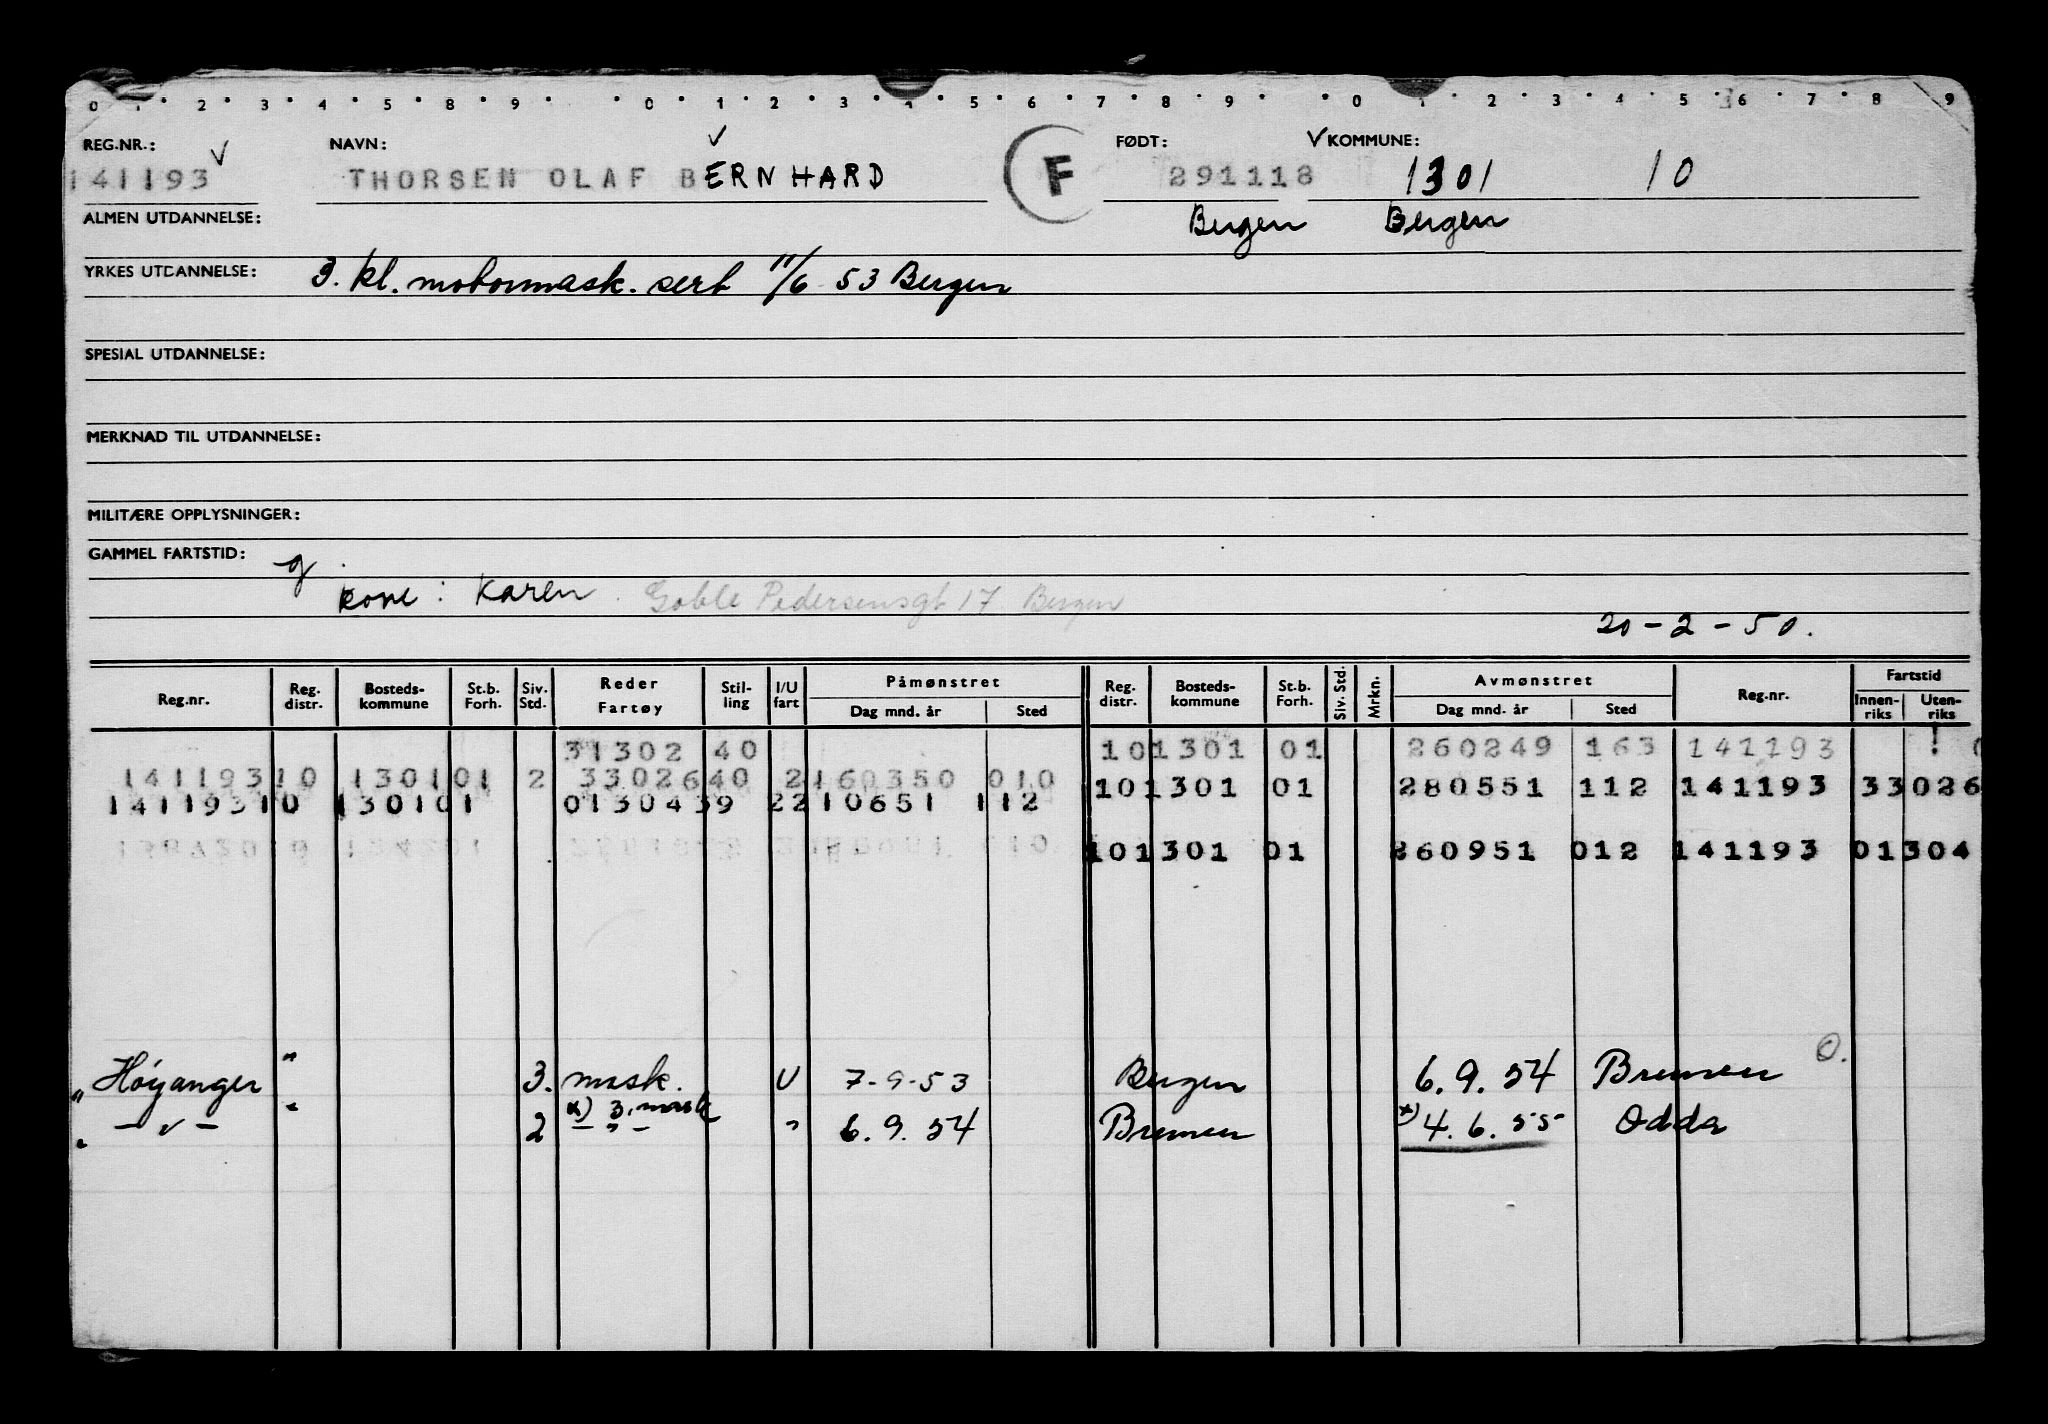 0 1 2 3 4 5 8 9 0 1 2 3 4 5 6 7 8 9 0 1 2 3 4 5 6 7 8 9
REG.NR.: NAVN: FØDT: KOMMUNE:
141193 THORSEN OLAF BERNHARD F 291118 1301 10
ALMEN UTDANNELSE: Bergen Bergen
YRKES UTDANNELSE: 3. kl. motormask. sert 11/6 53 Bergen
SPESIAL UTDANNELSE:
MERKNAD TIL UTDANNELSE:
MILITÆRE OPPLYSNINGER:
GAMMEL FARTSTID: g.
kone: Karen. Goble Pedersensgt 17 Bergen
20-2-50.
Reg.nr. Reg. distr. Bosteds-kommune St.b. Forh. Siv. Std. Reder Fartøy Stil-ling I/U fart Påmønstret Dag mnd. år Sted Reg. distr. Bosteds-kommune St.b. Forh. Siv. Std. Mrkn. Avmønstret Dag mnd. år Sted Reg.nr. Fartstid Innen-riks Uten-riks
31302 40 101301 01 260249 163 141193
14119310 130101 2 3302640 2160350 010 101301 01 280551 112 141193 33026
14119310 130101 0130439 2210651 112
101301 01 260951 012 141193 01304
" Høyanger " 3. mask. U 7-9-53 Bergen 6.9.54 Bremen O.
x) 3. mask
" - " - 2 - " - " 6.9.54 Bremen x) 4.6.55 Odda